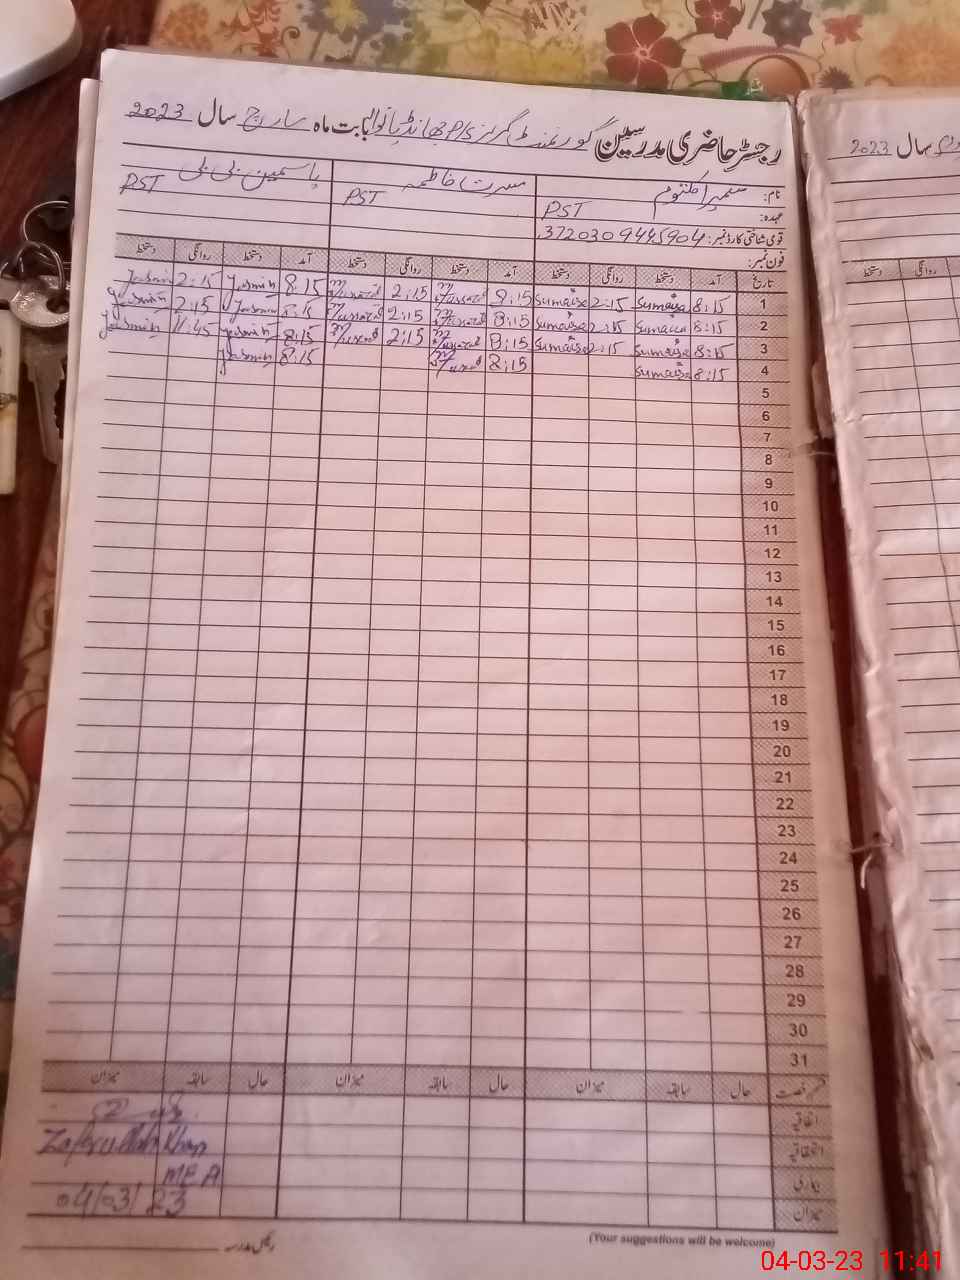 رجسٹر حاضری مدرسین گورنمنٹ گرلز P/S جھانڈیانوالہ بابت ماہ مارچ سال 2023
سال 2023
نام: سمیرا کلثوم مسرت فاطمہ یاسمین بی بی
عہدہ: PST PST PST
قومی شناختی کارڈ نمبر: 3720309445904
فون نمبر:
تاریخ آمد دستخط روانگی دستخط آمد دستخط روانگی دستخط آمد دستخط روانگی دستخط
روانگی دستخط
1 8:15 Sumaisa 2:15 Sumaisa 8:15 Mussarat 2:15 Mussarat 8:15 Yasmin 2:15 Yasmin
2 8:15 Sumaisa 2:15 Sumaisa 8:15 Mussarat 2:15 Mussarat 8:15 Yasmin 2:15 Yasmin
3 8:15 Sumaisa 2:15 Sumaisa 8:15 Mussarat 2:15 Mussarat 8:15 Yasmin 11:45 Yasmin
4 8:15 Sumaisa 8:15 Mussarat 8:15 Yasmin
5
6
7
8
9
10
11
12
13
14
15
16
17
18
19
20
21
22
23
24
25
26
27
28
29
30
31
قسم رخصت حال سابقہ میزان حال سابقہ میزان حال سابقہ میزان
اتفاقیہ
استحقاقیہ
Zafarullah Khan
بیماری
MEA
میزان
04/03/23
رئیس مدرسہ
(Your suggestions will be welcome)
04-03-23 11:41